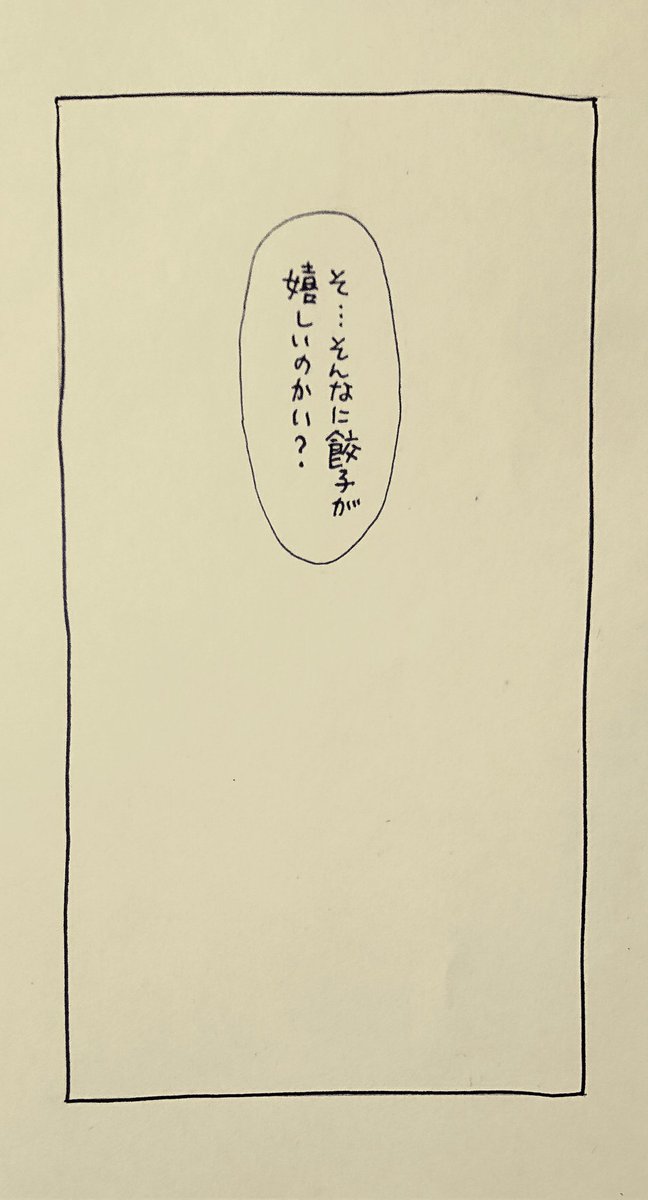 そ…そんなに餃子が
嬉しいのかい？